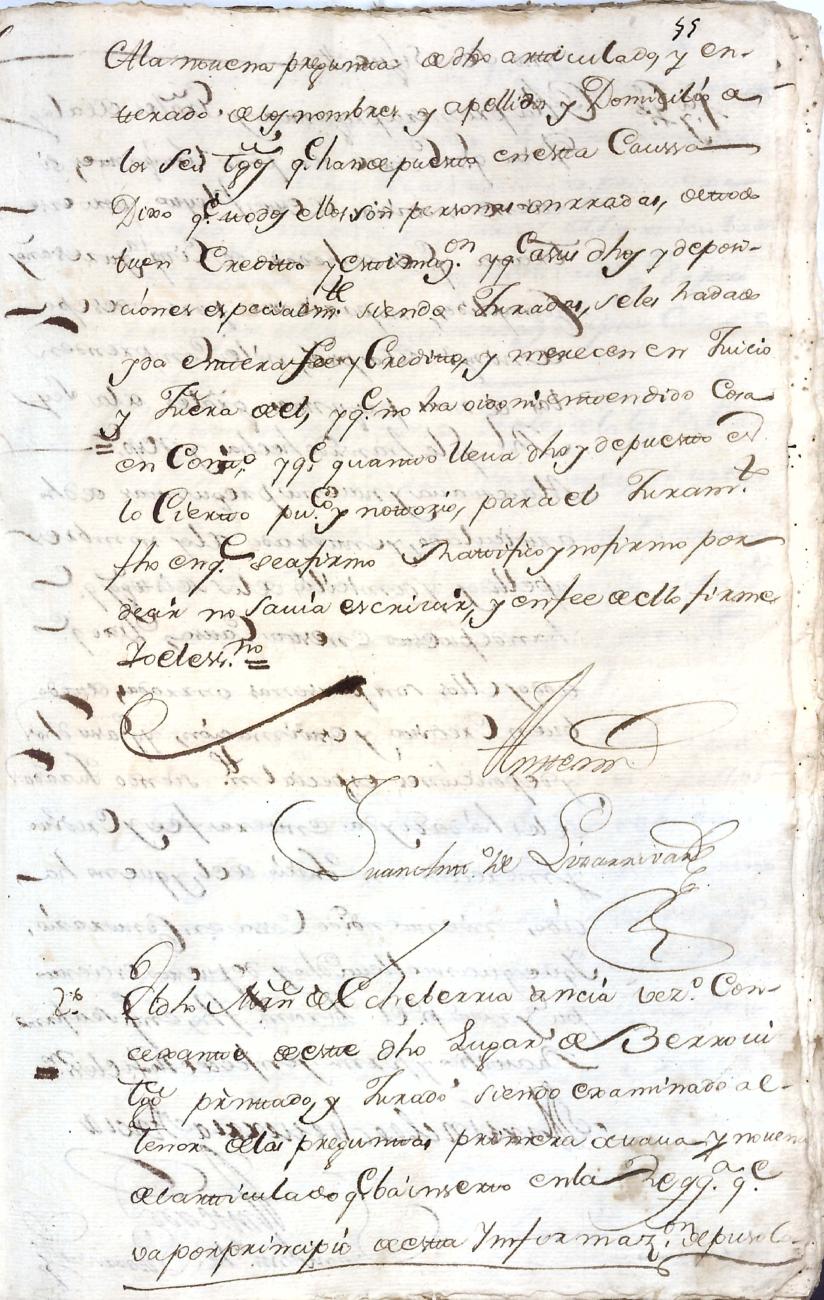 55
A la novena pregunta de dho articulado, y en-
terado de los nombres y apellidos y Domizilios de
los seis tgos q.e han depuesto en esta Caussa
Dixo q.e todos ellos son personas onrradas, de todo
buen Credito y estimaz.on y q.e a sus dhos y deposi-
ciones especialm.te siendo Juradas, se les ha dado
y da entera fee y Credito, y merecen en Juicio
y Fuera de el, y q.e no ha oido ni entendido Cosa
en Contr.o y q.e quanto lleva dho y depuesto es
lo Cierto pu.co y notorio, para el Juram.to
fho en q.e se afirmo Ratifico y no firmo por
decir no savia escrivir, y en fee de ello firme
Yo el ess.no =
Ante mi
Juan Ant.o de Lizarrivar
2.o
El dho Mrn de Echeberria ancia vez.o Con-
cejante de este dho Lugar de Berrovi
tgo pñtado, y Jurado siendo examinado al
tenor de las preguntas primera octava y novena
del articulado q.e ba inserto en la Reqq.a q.e
va por principio de esta Ynformaz.on depuso lo